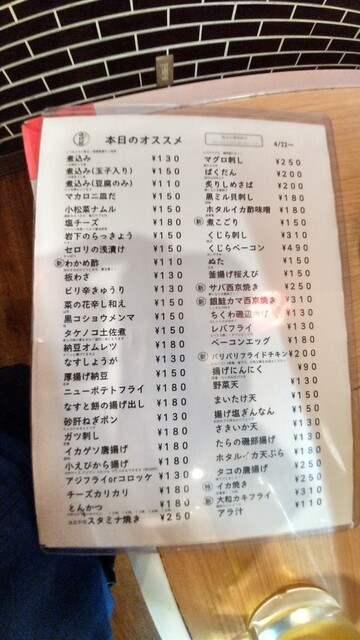 本日のオススメ
4/22〜
煮込み ¥130
煮込み(玉子入り) ¥150
煮込み(豆腐のみ) ¥110
マカロニ皿だ ¥150
小松菜ナムル ¥150
塩チーズ ¥180
岩下のらっきょう ¥150
セロリの浅漬け ¥150
新 わかめ酢 ¥110
板わさ ¥130
ピリ辛きゅうり ¥130
菜の花辛し和え ¥150
黒コショウメンマ ¥150
タケノコ土佐煮 ¥150
納豆オムレツ ¥180
なすしょうが ¥130
厚揚げ納豆 ¥150
ニューポテトフライ ¥180
なすと餅の揚げ出し ¥180
砂肝ねぎポン ¥130
ガツ刺し ¥180
イカゲソ唐揚げ ¥180
小えびから揚げ ¥180
アジフライorコロッケ ¥130
チーズカリカリ ¥180
とんかつ ¥180
スタミナ焼き ¥250
マグロ刺し ¥250
ばくだん ¥200
炙りしめさば ¥200
黒ミル貝刺し ¥180
ホタルイカ酢味噌 ¥180
新 煮こごり ¥150
くじら刺し ¥310
くじらベーコン ¥490
ぬた ¥150
釜揚げ桜えび ¥150
新 サバ西京焼き ¥250
新 銀鮭カマ西京焼き ¥310
ちくわ磯辺揚げ ¥130
レバフライ ¥130
ベーコンエッグ ¥180
新 パリパリフライドチキン ¥200
揚げにんにく ¥90
野菜天 ¥130
まいたけ天 ¥150
揚げ塩ぎんなん ¥150
さきいか天 ¥130
たらの磯部揚げ ¥130
ホタルイカ天ぷら ¥180
タコの唐揚げ ¥250
イカ焼き ¥250
大粒カキフライ ¥310
アラ汁 ¥110